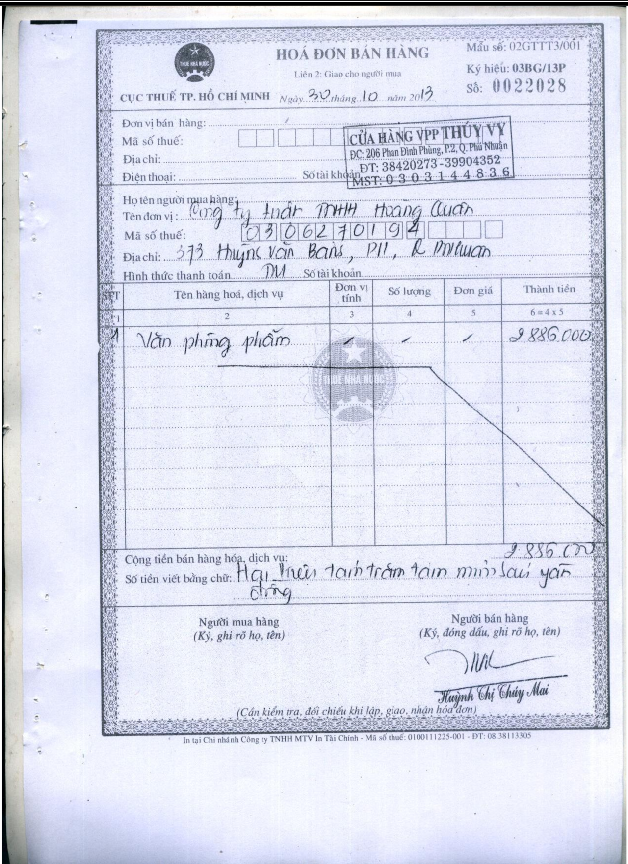 HOÁ ĐƠN BÁN HÀNG
Mẫu số: 02GTTT3/001
THUẾ NHÀ NƯỚC
Liên 2: Giao cho người mua
Ký hiệu: 03BG/13P
Số: 0022028
CỤC THUẾ TP. HỒ CHÍ MINH
Ngày 30 tháng 10 năm 2013
Đơn vị bán hàng:
Mã số thuế:
Địa chỉ:
Điện thoại: Số tài khoản
CỬA HÀNG VPP THÚY VY
ĐC: 206 Phan Đình Phùng, P.2, Q. Phú Nhuận
ĐT: 38420273 - 39904352
MST: 0303144836
Họ tên người mua hàng:
Tên đơn vị: Công ty Luật TNHH Hoàng Quân
Mã số thuế: 0306270194
Địa chỉ: 373 Huỳnh Văn Bánh, P11, Q Phú Nhuận
Hình thức thanh toán TM Số tài khoản
STT Tên hàng hoá, dịch vụ Đơn vị tính Số lượng Đơn giá Thành tiền
1 2 3 4 5 6 = 4 x 5
1 Văn phòng phẩm - - - 2.886.000
THUẾ NHÀ NƯỚC
Cộng tiền bán hàng hóa, dịch vụ: 2.886.000
Số tiền viết bằng chữ: Hai triệu tám trăm tám mươi sáu ngàn
đồng
Người mua hàng
(Ký, ghi rõ họ, tên)
Người bán hàng
(Ký, đóng dấu, ghi rõ họ, tên)
Huỳnh Thị Thúy Mai
(Cần kiểm tra, đối chiếu khi lập, giao, nhận hóa đơn)
In tại Chi nhánh Công ty TNHH MTV In Tài Chính - Mã số thuế: 0100111225-001 - ĐT: 08 38113305